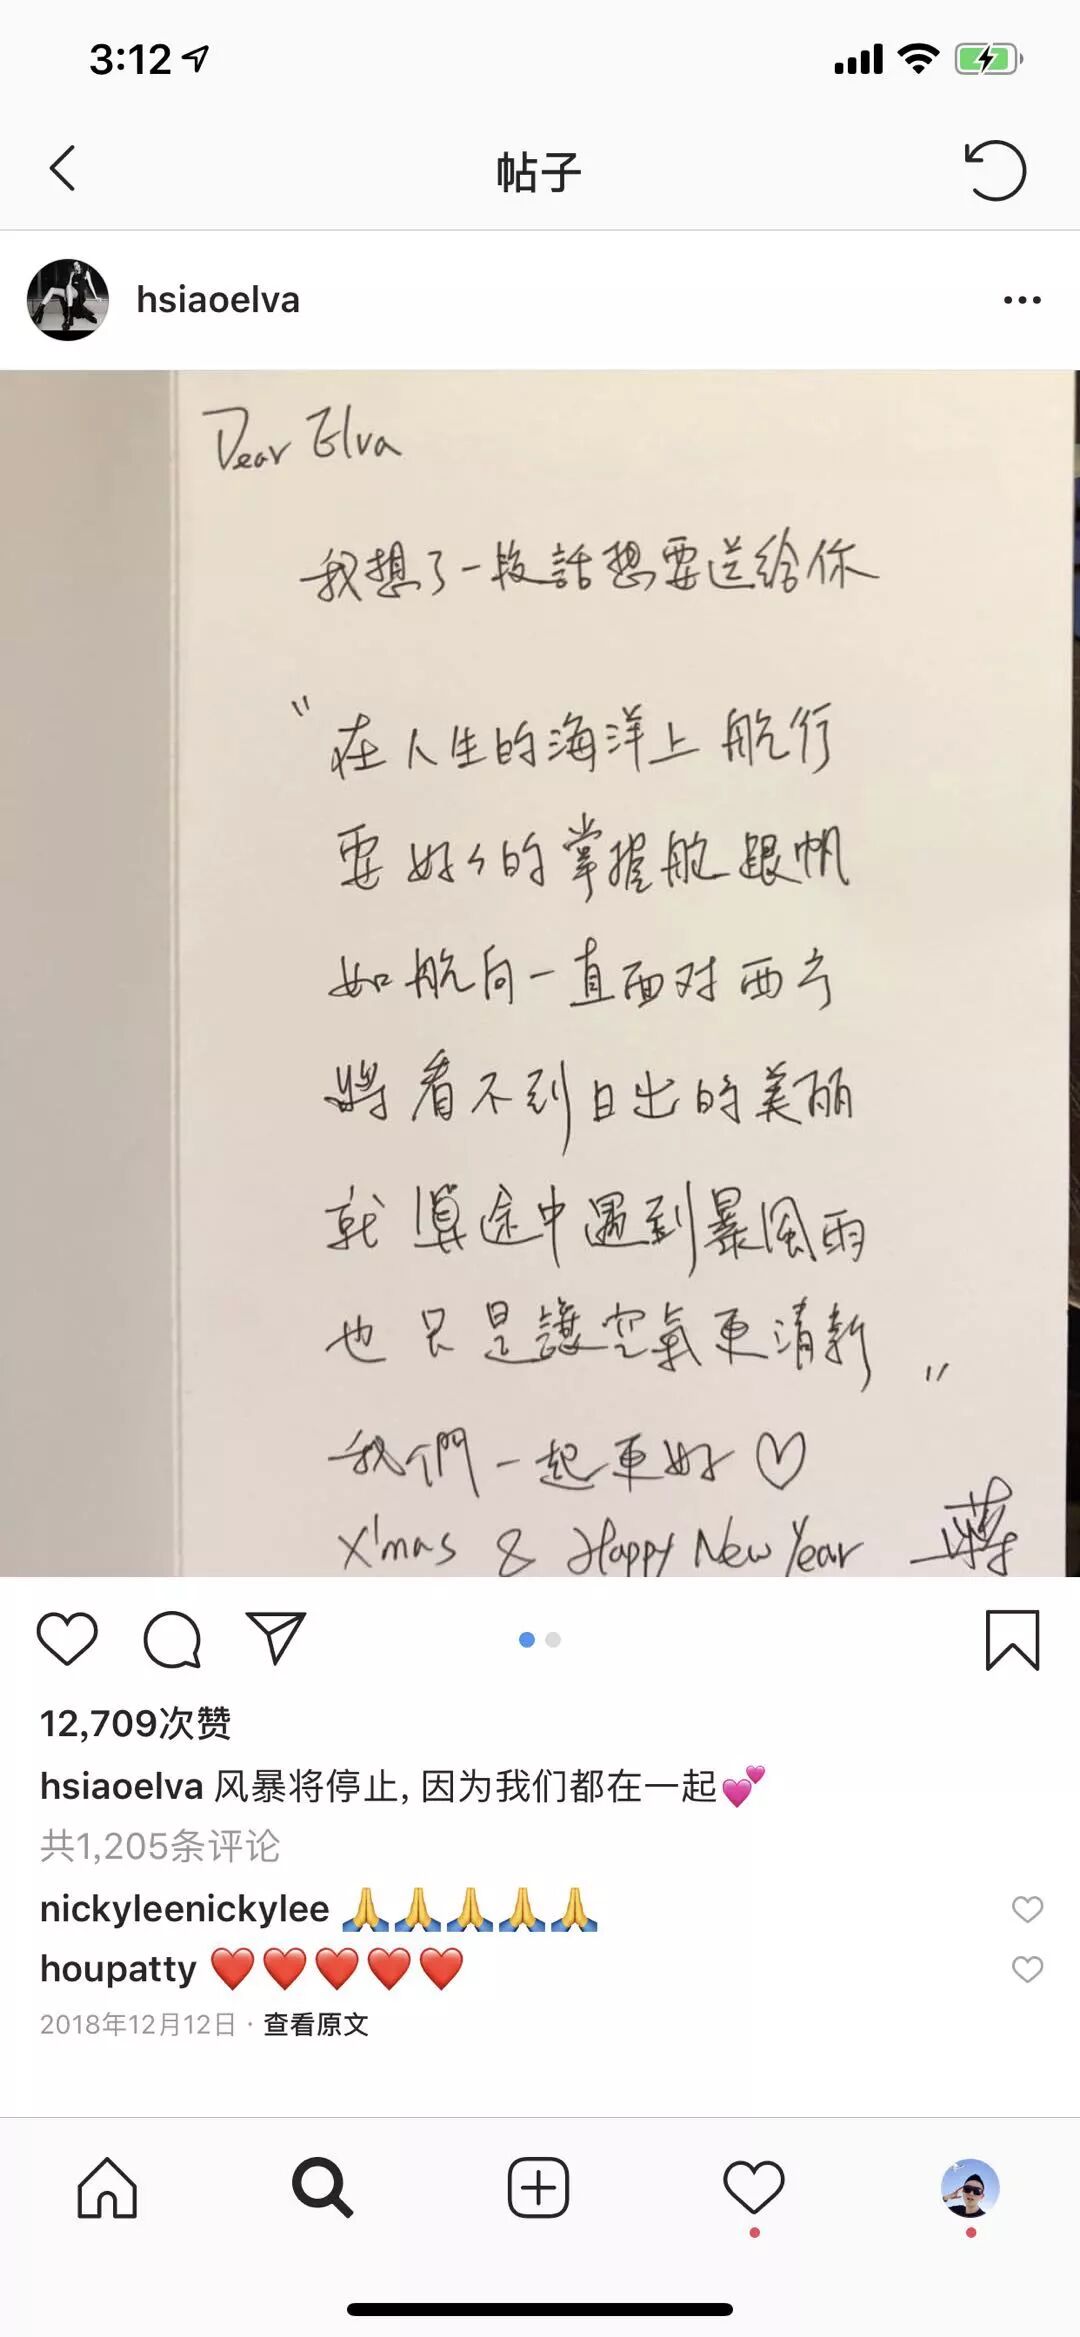 3:12
帖子
hsiaoelva
Dear Elva
我想了一段話想要送給你
"在人生的海洋上航行
要好好的掌握舵跟帆
如航向一直面对西方
將看不到日出的美丽
就算途中遇到暴風雨
也只是讓空氣更清新"
我們一起更好♡
X'mas & Happy New Year
12,709次赞
hsiaoelva 风暴将停止, 因为我们都在一起💕
共1,205条评论
nickyleenickylee 🙏🙏🙏🙏🙏
houpatty ❤️❤️❤️❤️❤️
2018年12月12日 · 查看原文